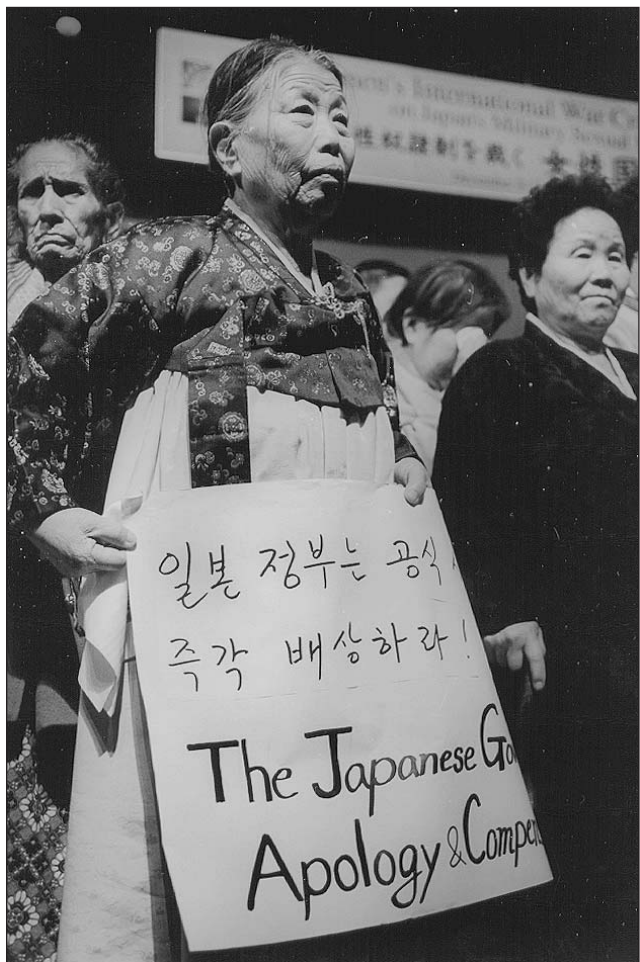 International War Cri
on Japan's Military Sexual
性奴隷制を裁く 女性国
일본 정부는 공식
즉각 배상하라!
The Japanese Go
Apology & Compen